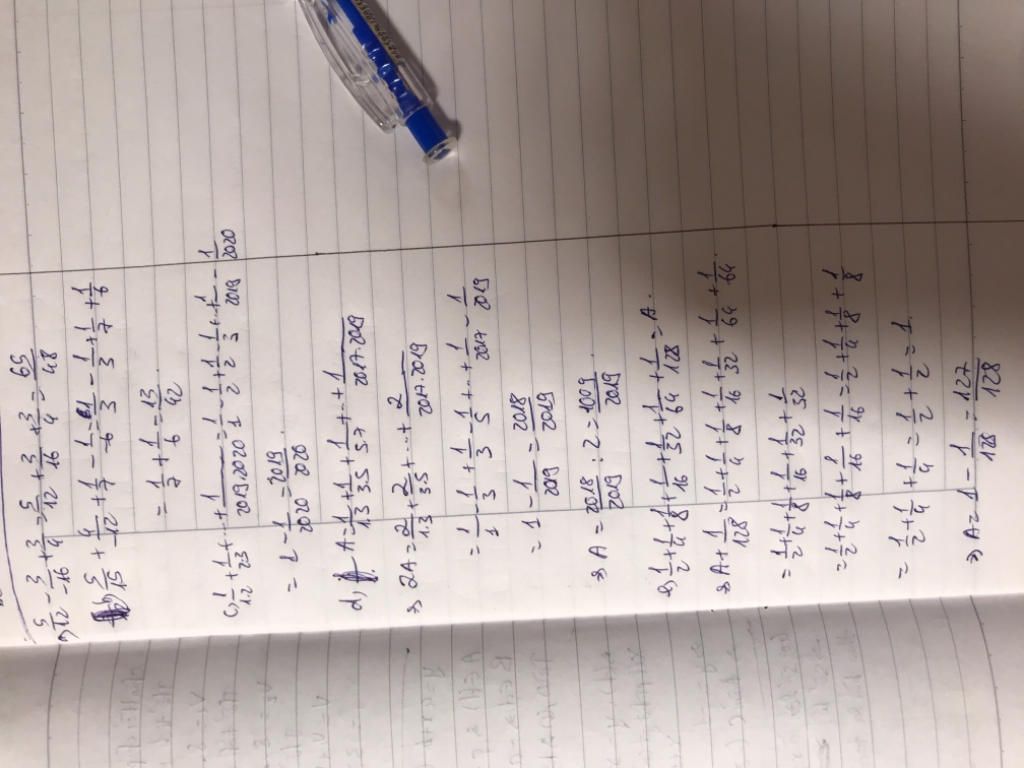 a) 5/12 - 3/-16 + 3/4 = 5/12 + 3/16 + 3/4 = 65/48
b) 5/15 + 1/-12 + 1/7 - 1/-6 = 1/3 - 1/3 + 1/7 + 1/6
= 1/7 + 1/6 = 13/42
c, 1/1.2 + 1/2.3 + ... + 1/2019.2020 = 1/1 - 1/2 + 1/2 - 1/3 + ... + 1/2019 - 1/2020
= 1 - 1/2020 = 2019/2020
d, A = 1/1.3 + 1/3.5 + 1/5.7 + ... + 1/2017.2019
⇒ 2A = 2/1.3 + 2/3.5 + ... + 2/2017.2019
= 1/1 - 1/3 + 1/3 - 1/5 + ... + 1/2017 - 1/2019
= 1 - 1/2019 = 2018/2019
⇒ A = 2018/2019 : 2 = 1009/2019
e, 1/2 + 1/4 + 1/8 + 1/16 + 1/32 + 1/64 + 1/128 = A.
⇒ A + 1/128 = 1/2 + 1/4 + 1/8 + 1/16 + 1/32 + 1/64 + 1/64
= 1/2 + 1/4 + 1/8 + 1/16 + 1/32 + 1/32
= 1/2 + 1/4 + 1/8 + 1/16 + 1/16 = 1/2 + 1/4 + 1/8 + 1/8
= 1/2 + 1/4 + 1/4 = 1/2 + 1/2 = 1.
⇒ A = 1 - 1/128 = 127/128